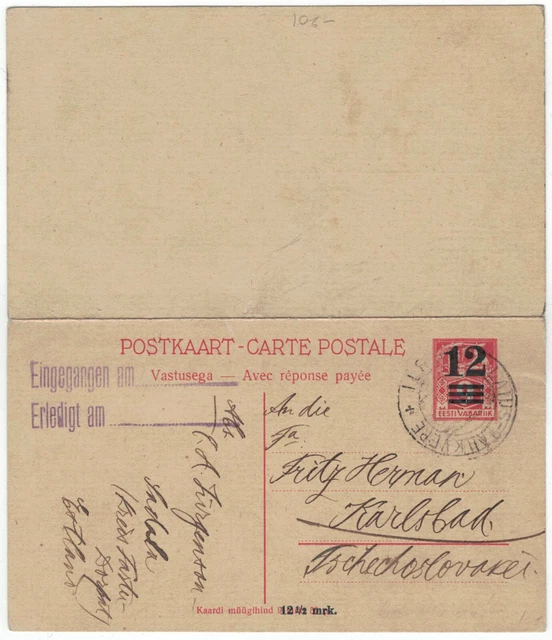 106-
POSTKAART - CARTE POSTALE
Vastusega — Avec réponse payée
12
EESTI VABARIIK
TAHKVERE
Eingegangen am
Erledigt am
Abs.
C. A. Jürgenson
Sadala
(Kreis Tartu-
Dorpat)
Estland
An die
Fa.
Fritz Herman
Karlsbad.
Tschechoslovakei.
Kaardi müügihind
12 1/2 mrk.